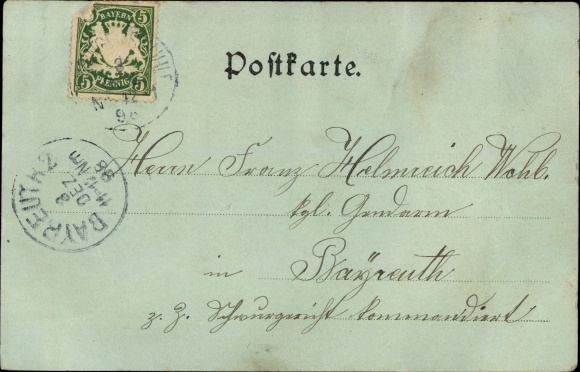 BAYERN
5 5
PFENNIG
Postkarte.
BAYREUTH 2
8 DEZ
Nm
98
Herrn Franz Helmreich Wohl.
kgl. Gendarm
in Bayreuth
z. Z. Schwurgericht kommandiert